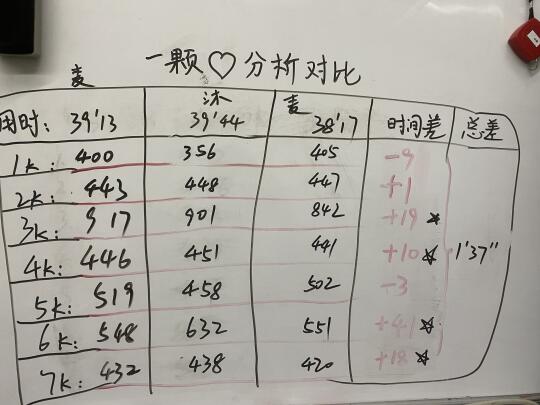 一颗♡分析对比
麦 沐 麦
用时: 39'13 39'44 38'17 时间差 总差
1k: 400 356 405 -9
2k: 443 448 447 +1
3k: 917 901 842 +19 ☆
4k: 446 451 441 +10 ☆ 1'37"
5k: 519 458 502 -3
6k: 548 632 551 +41 ☆
7k: 432 438 420 +18 ☆